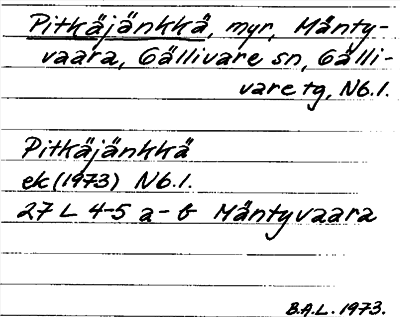 Pitkäjänkkä, myr, Mänty-
vaara, Gällivare sn, Gälli-
vare tg, Nb.l.
Pitkäjänkkä
ek (1973) Nb.l.
27 L 4-5 a-b Mäntyvaara
B.A.L. 1973.